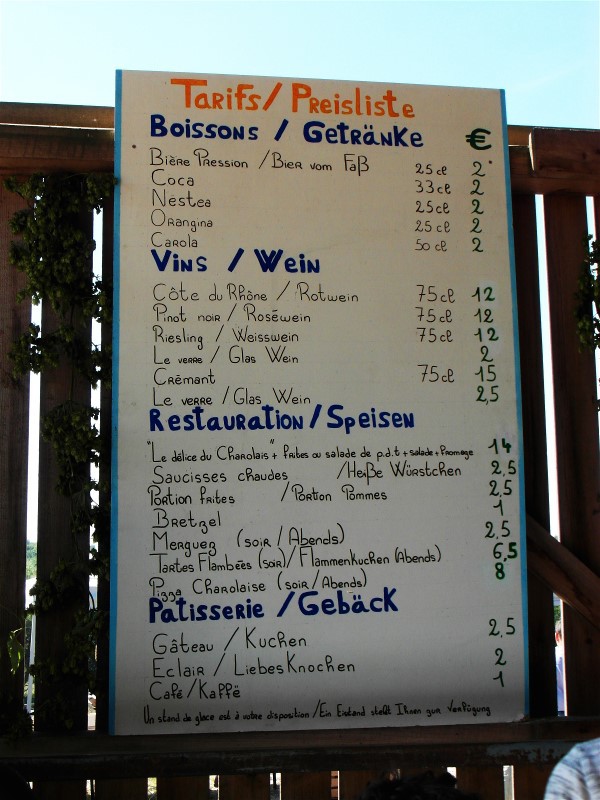 Tarifs / Preisliste
Boissons / Getränke €
Bière Pression / Bier vom Faß 25 cl 2
Coca 33 cl 2
Nestea 25 cl 2
Orangina 25 cl 2
Carola 50 cl 2
Vins / Wein
Côte du Rhône / Rotwein 75 cl 12
Pinot noir / Roséwein 75 cl 12
Riesling / Weisswein 75 cl 12
Le verre / Glas Wein 2
Crémant 75 cl 15
Le verre / Glas Wein 2,5
Restauration / Speisen
"Le délice du Charolais" + frites ou salade de p.d.t + salade + fromage 14
Saucisses chaudes / Heiße Würstchen 2,5
Portion frites / Portion Pommes 2,5
Bretzel 1
Merguez (soir / Abends) 2,5
Tartes Flambées (soir) / Flammenkuchen (Abends) 6,5
Pizza Charolaise (soir / Abends) 8
Patisserie / Gebäck
Gâteau / Kuchen 2,5
Eclair / LiebesKnochen 2
Café / Kaffë 1
Un stand de glace est à votre disposition / Ein Eistand steßt Ihnen zur Verfügung